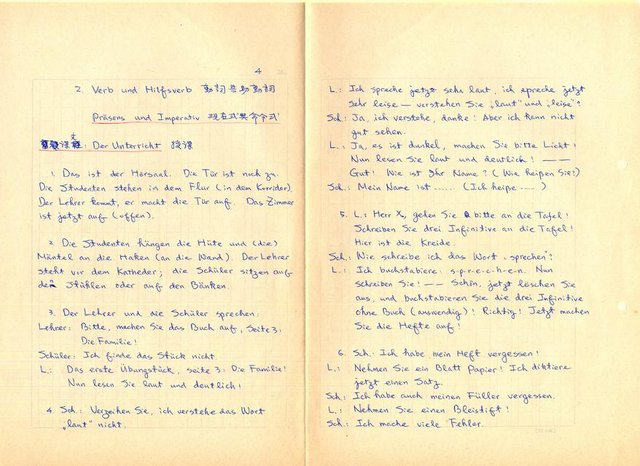 4
2. Verb und Hilfsverb 動詞与助動詞
Präsens und Imperativ 現在式與命令式
課文: Der Unterricht 授課
1. Das ist der Hörsaal. Die Tür ist noch zu.
Die Studenten stehen in dem Flur (in dem Korridor).
Der Lehrer kommt, er macht die Tür auf. Das Zimmer
ist jetzt auf (offen).
2. Die Studenten hängen die Hüte und (die)
Mäntel an die Haken (an die Wand). Der Lehrer
steht vor dem Katheder; die Schüler sitzen auf
den Stühlen oder auf den Bänken.
3. Der Lehrer und die Schüler sprechen:
Lehrer: Bitte, machen Sie das Buch auf, Seite 3:
Die Familie!
Schüler: Ich finde das Stück nicht
L.: Das erste Übungstück, seite 3: Die Familie!
Nun lesen Sie laut und deutlich!
4. Sch.: Verzeihen Sie, ich verstehe das Wort
„laut" nicht.
L.: Ich spreche jetzt sehr laut, ich spreche jetzt
sehr leise — verstehen Sie „laut" und „leise"?
Sch.: Ja, ich verstehe, danke! Aber ich kann nicht
gut sehen.
L.: Ja, es ist dunkel, machen Sie bitte Licht!
Nun lesen Sie laut und deutlich! ——
Gut! Wie ist Ihr Name? (Wie heißen Sie?)
Sch.: Mein Name ist ...... (Ich heiße ......)
5. L.: Herr X, gehen Sie bitte an die Tafel!
Schreiben Sie drei Infinitive an die Tafel!
Hier ist die Kreide.
Sch.: Wie schreibe ich das Wort „sprechen"?
L.: Ich buchstabiere: s.p.r.e.c.h.e.n. Nun
schreiben Sie! —— Schön, jetzt löschen Sie
aus, und buchstabieren Sie die drei Infinitive
ohne Buch (auswendig)! Richtig! Jetzt machen
Sie die Hefte auf!
6. Sch.: Ich habe mein Heft vergessen!
L.: Nehmen Sie ein Blatt Papier! Ich diktiere
jetzt einen Satz.
Sch.: Ich habe auch meinen Füller vergessen.
L.: Nehmen Sie einen Bleistift!
Sch.: Ich mache viele Fehler.